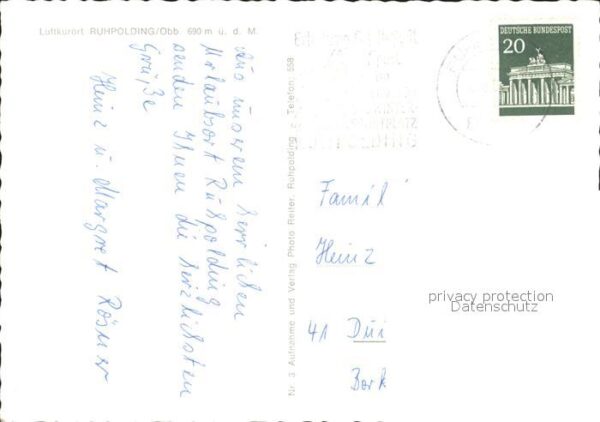 Luftkurort RUHPOLDING/Obb. 690 m ü. d. M.
Aus unserem herrlichen
Urlaubsort Ruhpolding
senden Ihnen die herzlichsten
Grüße
Heinz u. Margret Rösner
Nr. 3 Aufnahme und Verlag Photo Reiter, Ruhpolding - Telefon 558
DEUTSCHE BUNDESPOST
20
Famil
Heinz
41 Dui
Bork
privacy protection
Datenschutz